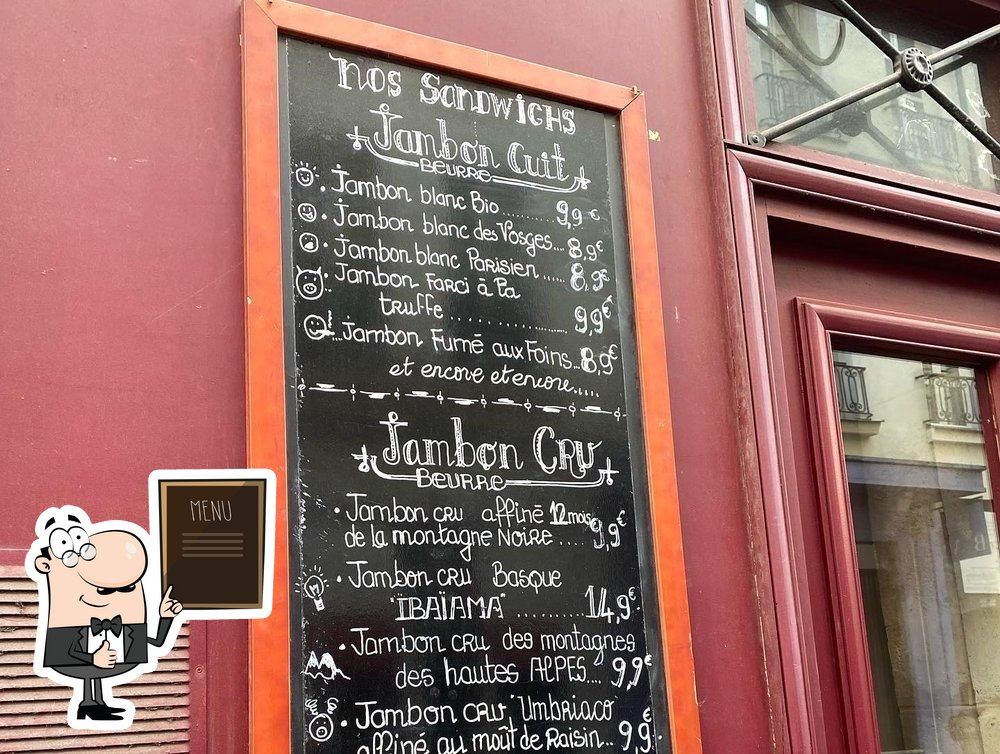 Nos Sandwichs
Jambon Cuit
BEURRE
Jambon blanc Bio........ 9,9 €
Jambon blanc des Vosges... 8,9€
Jambon blanc Parisien ..... 8,9€
Jambon Farci à la
truffe ..................... 9,9€
Jambon Fumé aux Foins... 8,9€
et encore et encore.....
Jambon CRU
BEURRE
Jambon cru affiné 12 mois
de la montagne Noire .... 9,9€
Jambon cru Basque
"IBAÏAMA" ............ 14,9€
Jambon cru des montagnes
des hautes ALPES.... 9,9€
Jambon cru "Umbriaco
affiné au moût de Raisin.. 9,9€
MENU